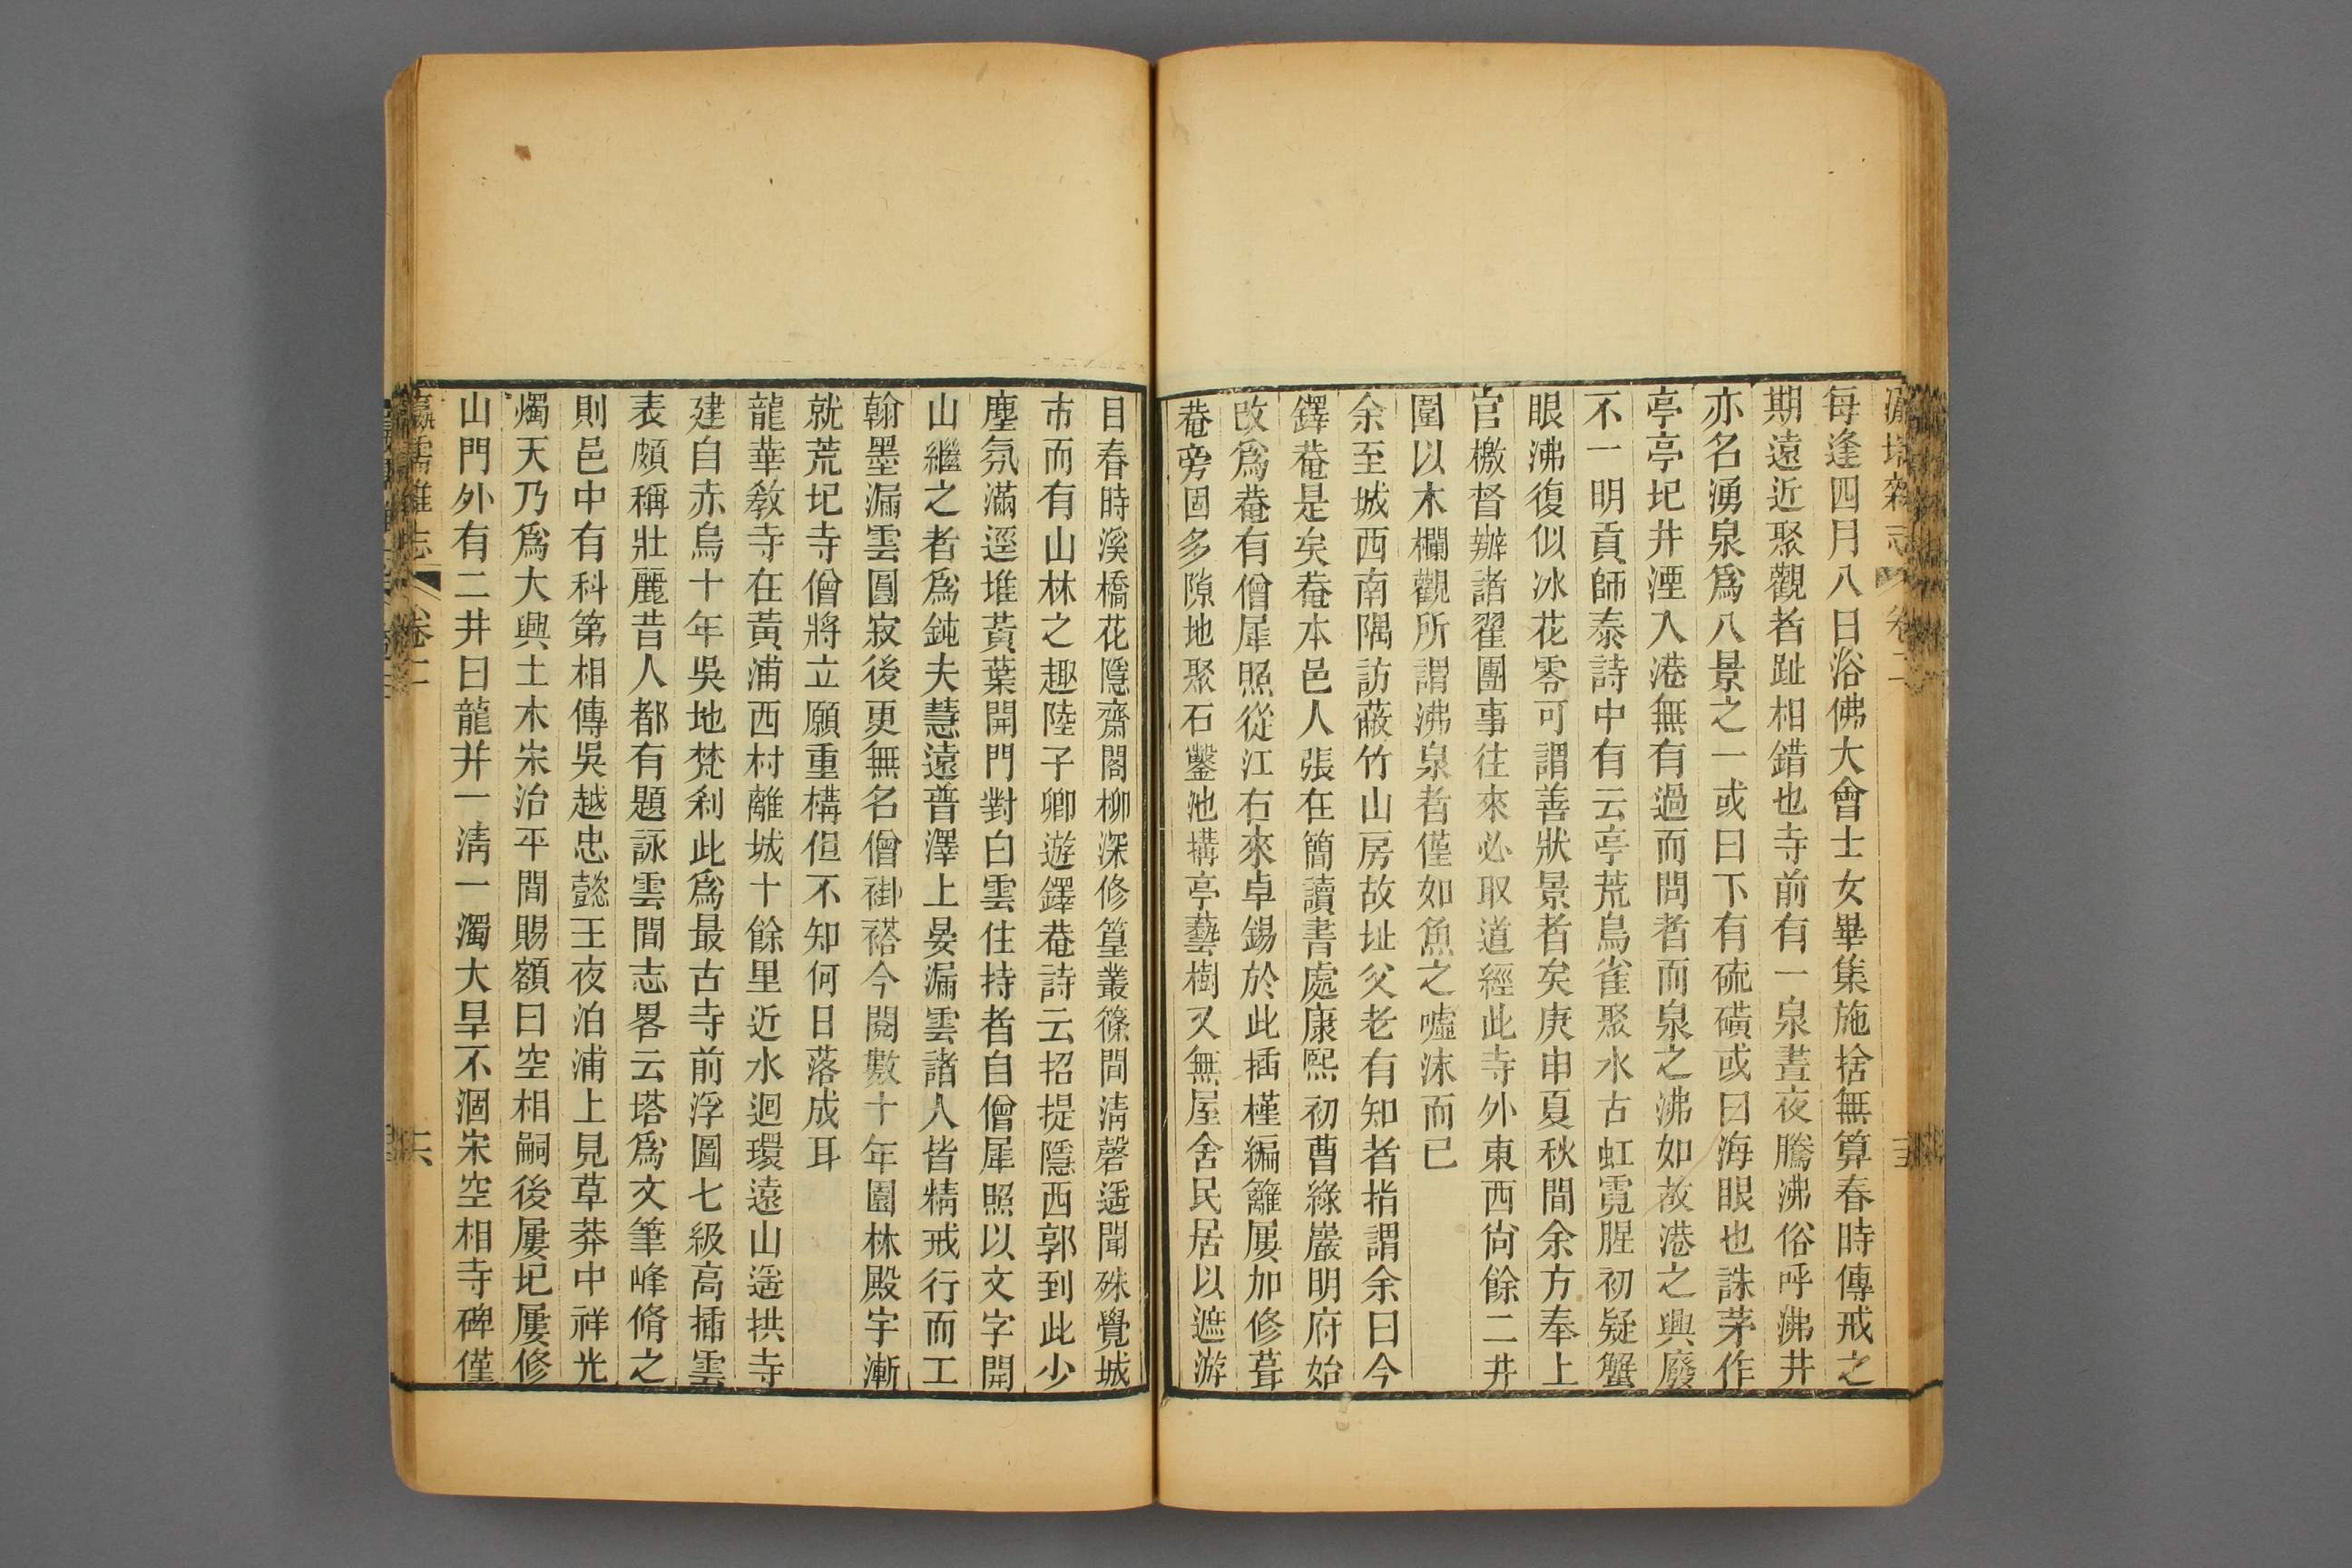 瀛壖雜志 卷二
每逢四月八日浴佛大會士女畢集施捨無算春時傳戒之
期遠近聚觀者趾相錯也寺前有一泉晝夜騰沸俗呼沸井
亦名湧泉爲八景之一或曰下有硫磺或曰海眼也誅茅作
亭亭圮井湮入港無有過而問者而泉之沸如故港之興廢
不一明貢師泰詩中有云亭荒鳥雀聚水古虹霓腥初疑蟹
眼沸復似冰花零可謂善狀景者矣庚申夏秋間余方奉上
官檄督辦諸翟團事往來必取道經此寺外東西尙餘二井
圍以木欄觀所謂沸泉者僅如魚之噓沫而已
余至城西南隅訪蔽竹山房故址父老有知者指謂余曰今
鐸菴是矣菴本邑人張在簡讀書處康熙初曹綠巖明府始
改爲菴有僧犀照從江右來卓錫於此插槿編籬屢加修葺
菴旁固多隙地聚石鑿池搆亭藝樹又無屋舍民居以遮游
目春時溪橋花隱齋閣柳深修篁叢篠間淸磬遥聞殊覺城
市而有山林之趣陸子卿遊鐸菴詩云招提隱西郭到此少
塵氛滿逕堆黃葉開門對白雲住持者自僧犀照以文字開
山繼之者爲鈍夫慧遠普澤上晏漏雲諸人皆精戒行而工
翰墨漏雲圓寂後更無名僧褂褡今閱數十年園林殿宇漸
就荒圮寺僧將立願重構但不知何日落成耳
龍華敎寺在黃浦西村離城十餘里近水迴環遠山遥拱寺
建自赤烏十年吳地梵刹此爲最古寺前浮圖七級高插雲
表頗稱壯麗昔人都有題詠雲間志畧云塔爲文筆峰脩之
則邑中有科第相傳吳越忠懿王夜泊浦上見草莽中祥光
燭天乃爲大興土木宋治平間賜額曰空相嗣後屢圮屢修
山門外有二井曰龍井一淸一濁大旱不涸宋空相寺碑僅
瀛壖雜志 卷二 六